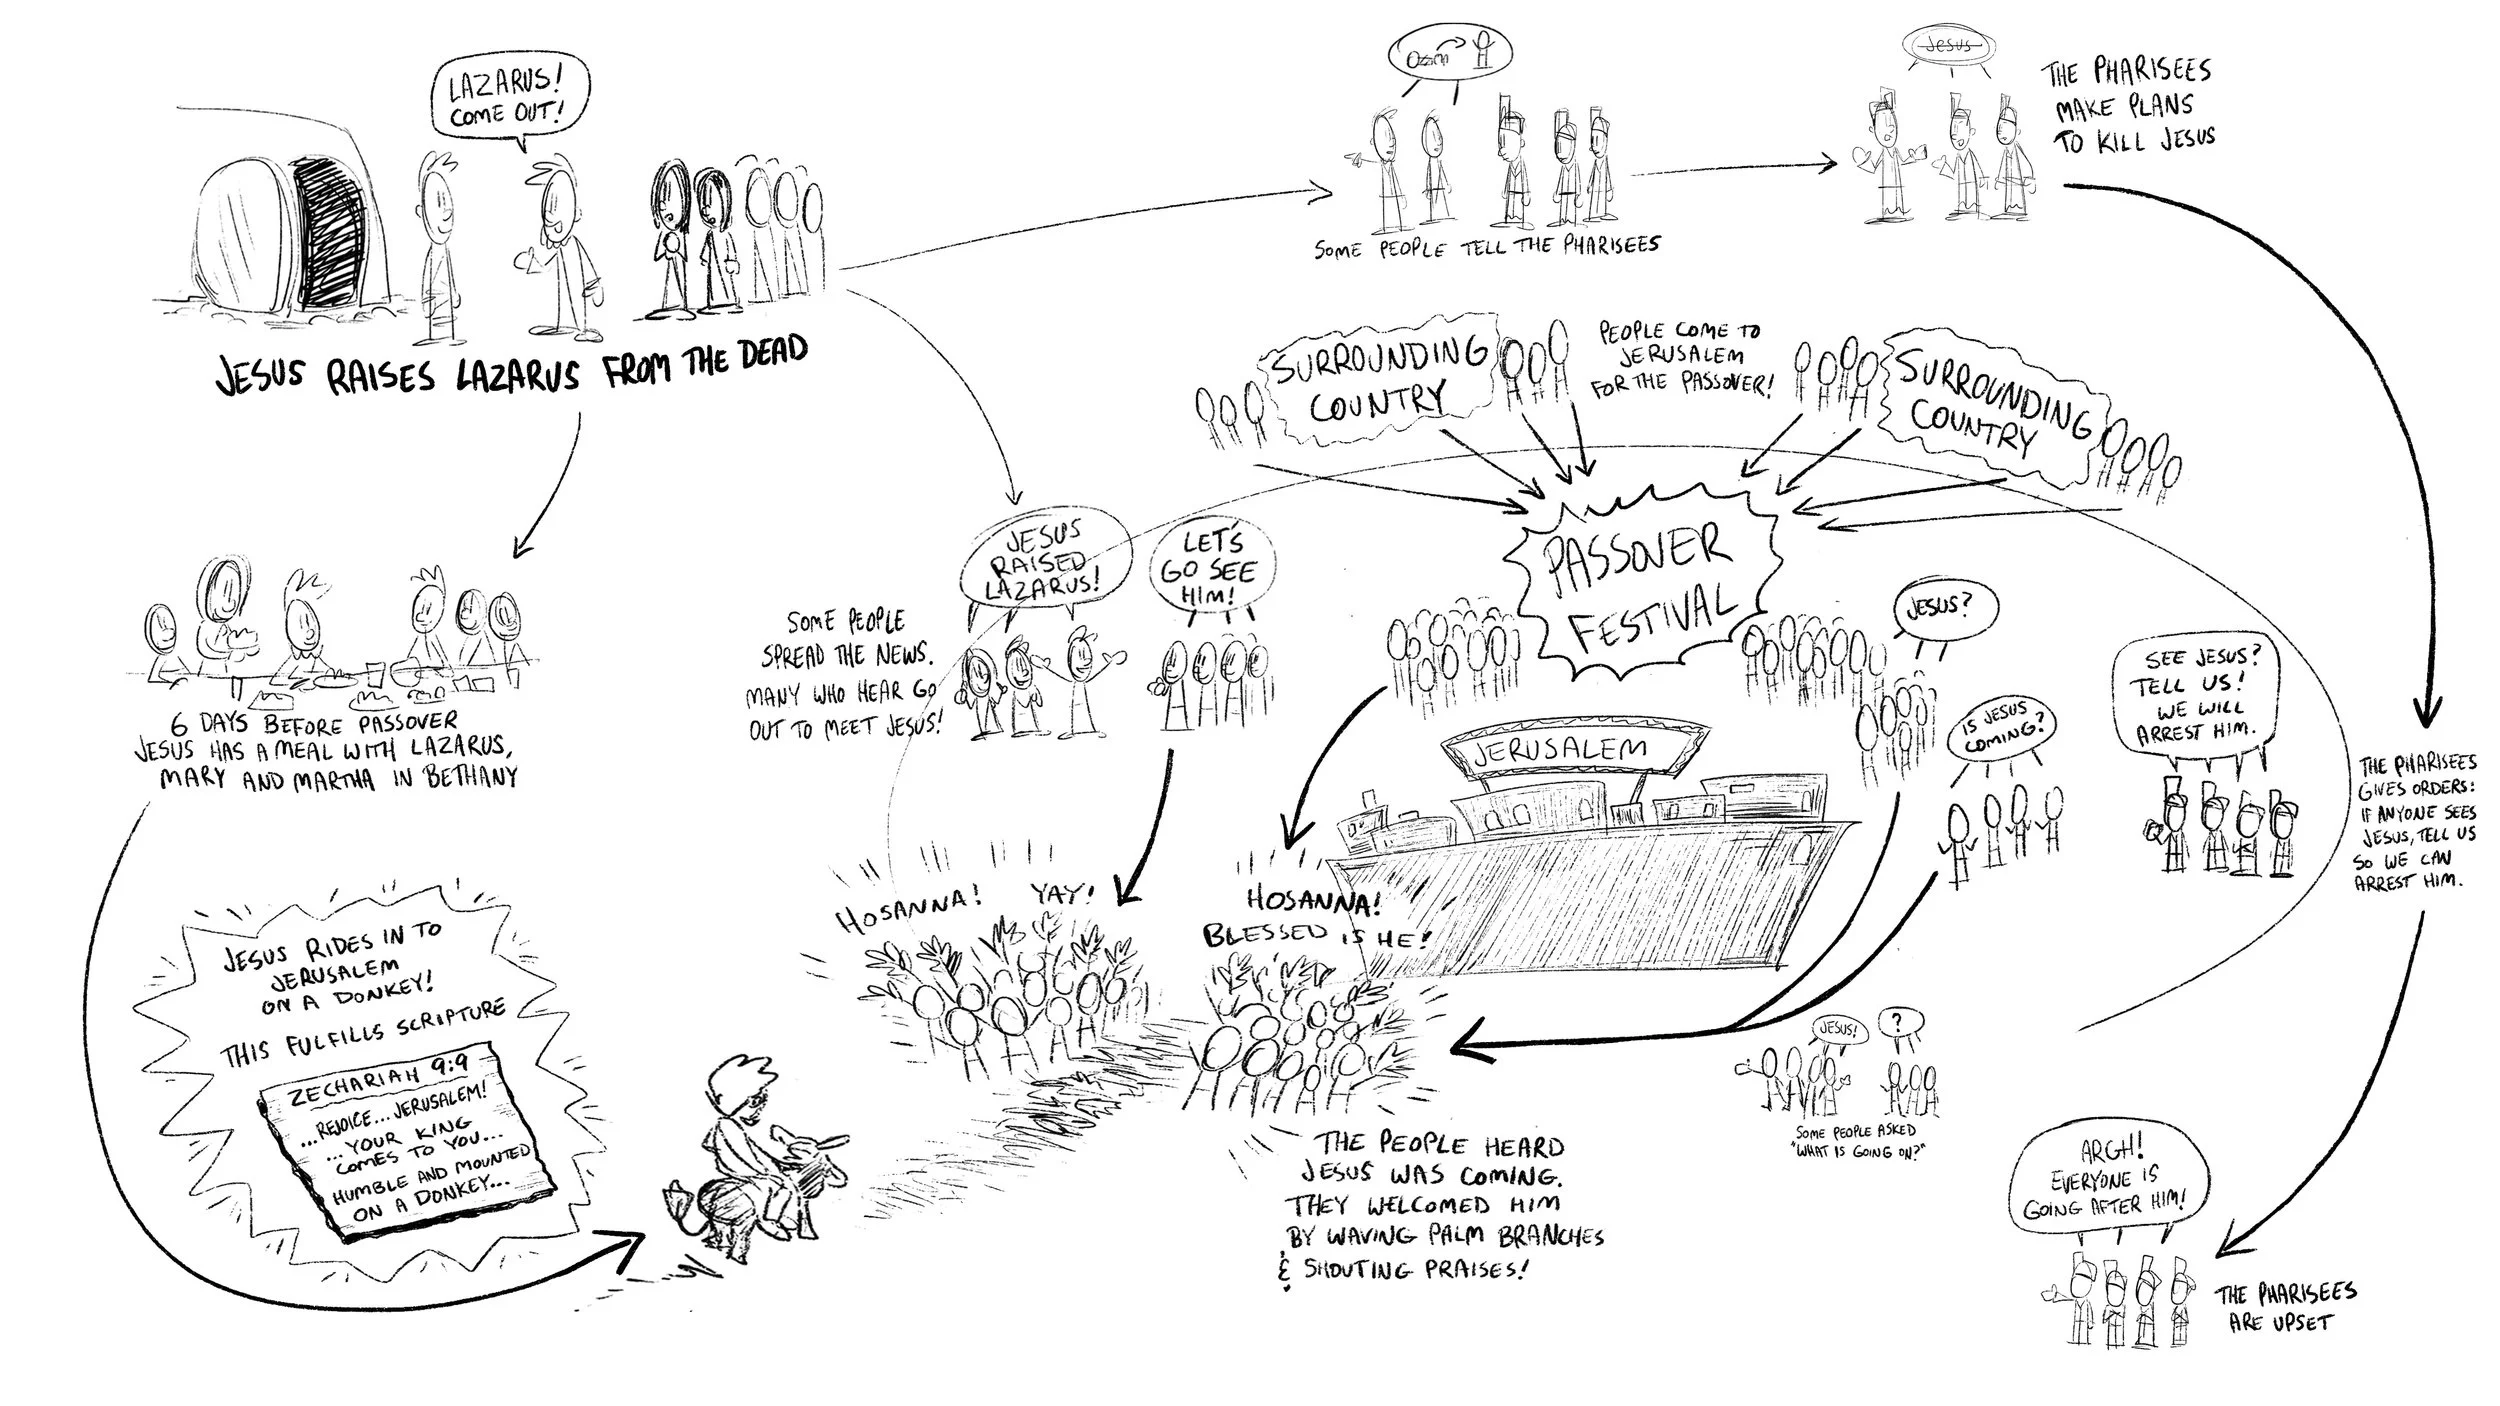 LAZARUS!
COME OUT!
JESUS RAISES LAZARUS FROM THE DEAD
SOME PEOPLE TELL THE PHARISEES
JESUS
THE PHARISEES
MAKE PLANS
TO KILL JESUS
SURROUNDING
COUNTRY
PEOPLE COME TO
JERUSALEM
FOR THE PASSOVER!
SURROUNDING
COUNTRY
PASSOVER
FESTIVAL
JESUS
RAISED
LAZARUS!
LET'S
GO SEE
HIM!
SOME PEOPLE
SPREAD THE NEWS.
MANY WHO HEAR GO
OUT TO MEET JESUS!
6 DAYS BEFORE PASSOVER
JESUS HAS A MEAL WITH LAZARUS,
MARY AND MARTHA IN BETHANY
JESUS?
IS JESUS
COMING?
SEE JESUS?
TELL US!
WE WILL
ARREST HIM.
THE PHARISEES
GIVES ORDERS:
IF ANYONE SEES
JESUS, TELL US
SO WE CAN
ARREST HIM.
JERUSALEM
HOSANNA! YAY!
HOSANNA!
BLESSED IS HE!
JESUS RIDES IN TO
JERUSALEM
ON A DONKEY!
THIS FULFILLS SCRIPTURE
ZECHARIAH 9:9
...REJOICE...JERUSALEM!
...YOUR KING
COMES TO YOU...
HUMBLE AND MOUNTED
ON A DONKEY...
THE PEOPLE HEARD
JESUS WAS COMING.
THEY WELCOMED HIM
BY WAVING PALM BRANCHES
& SHOUTING PRAISES!
JESUS!
?
SOME PEOPLE ASKED
"WHAT IS GOING ON?"
ARGH!
EVERYONE IS
GOING AFTER HIM!
THE PHARISEES
ARE UPSET